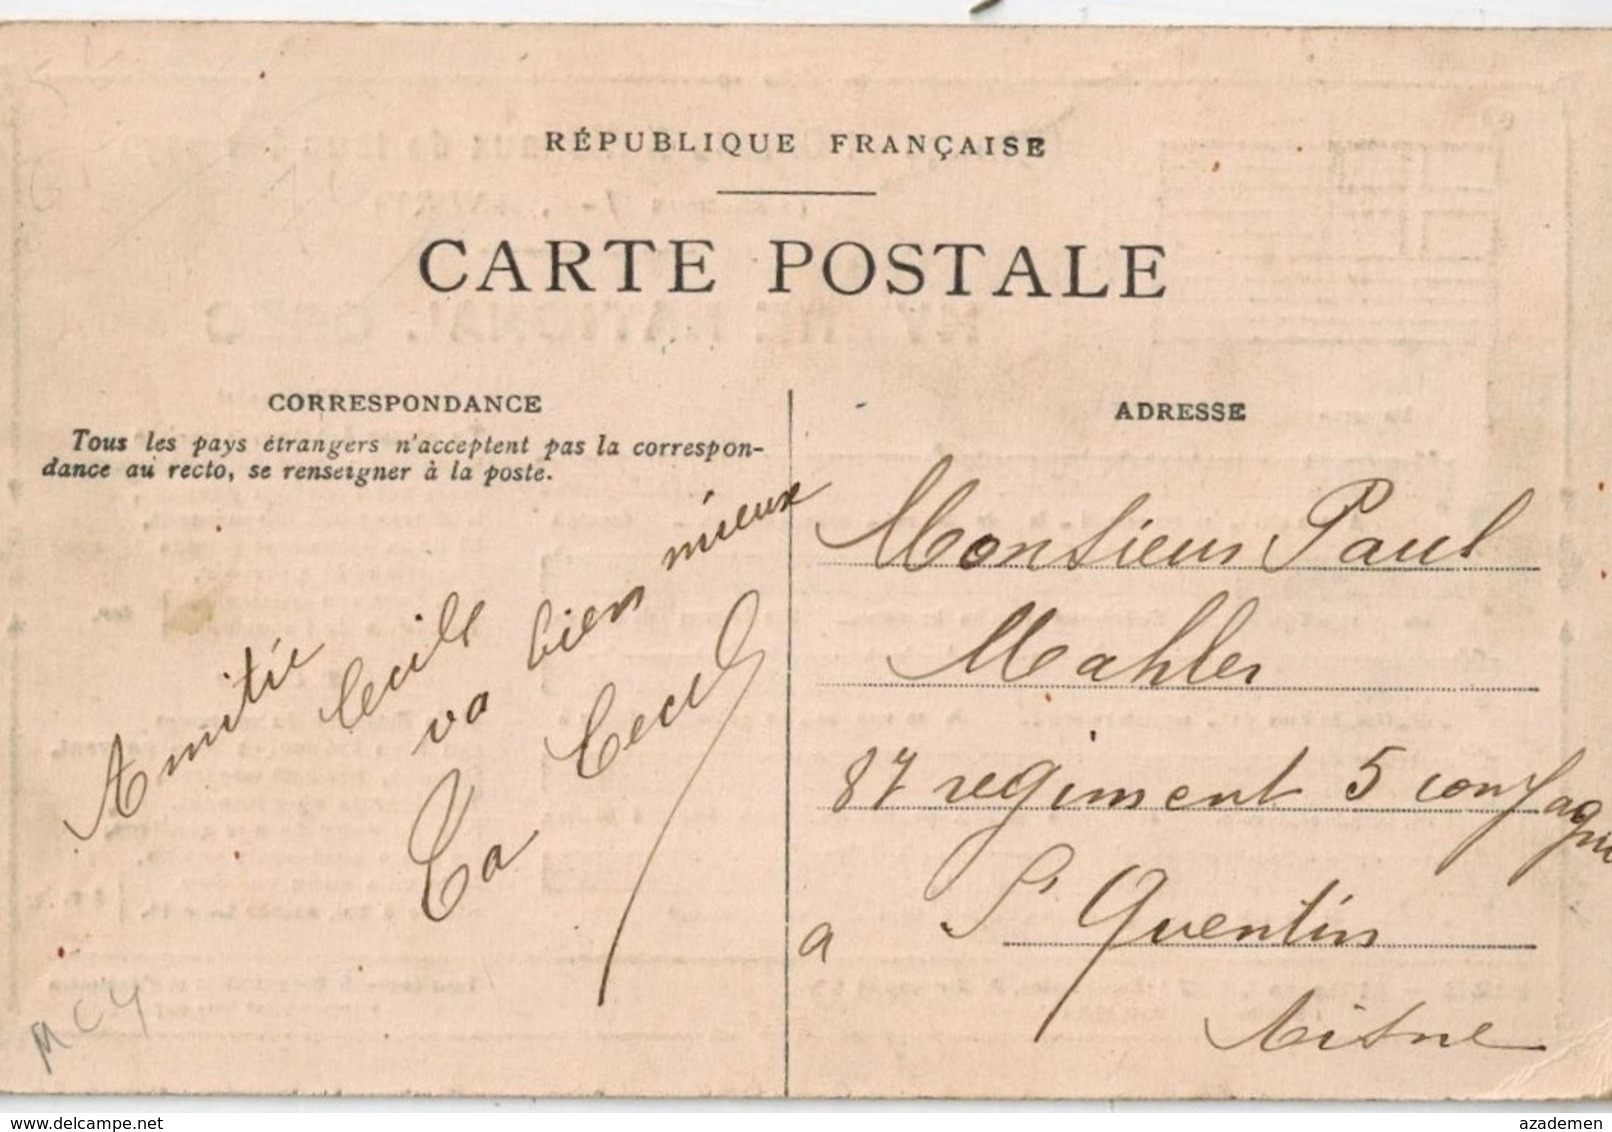 RÉPUBLIQUE FRANÇAISE
CARTE POSTALE
CORRESPONDANCE
Tous les pays étrangers n'acceptent pas la correspon-
dance au recto, se renseigner à la poste.
Amitié
Cecile
va bien mieux
Ta Cecil
ADRESSE
Monsieur Paul
Mahler
87 regiment 5 compagnie
a St Quentin
Aisne
MC4
azademen